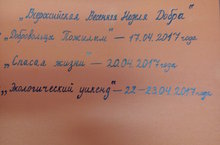 „Всероссийская Весенняя Неделя Добра“
„Добровольцы Пожилым“ — 17.04.2017 года
„Спасая жизни“ — 20.04.2017 года
„Экологический уикенд“ — 22-23.04.2017 года